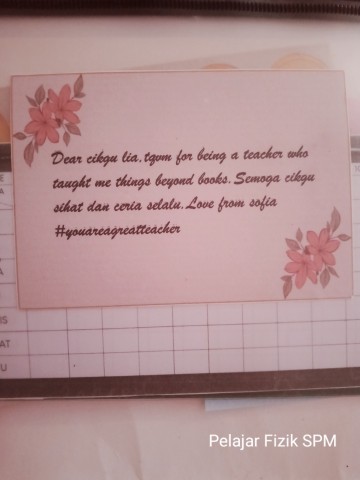 Dear cikgu lia,tqvm for being a teacher who
taught me things beyond books.Semoga cikgu
sihat dan ceria selalu.Love from sofia
#youareagreatteacher
Pelajar Fizik SPM